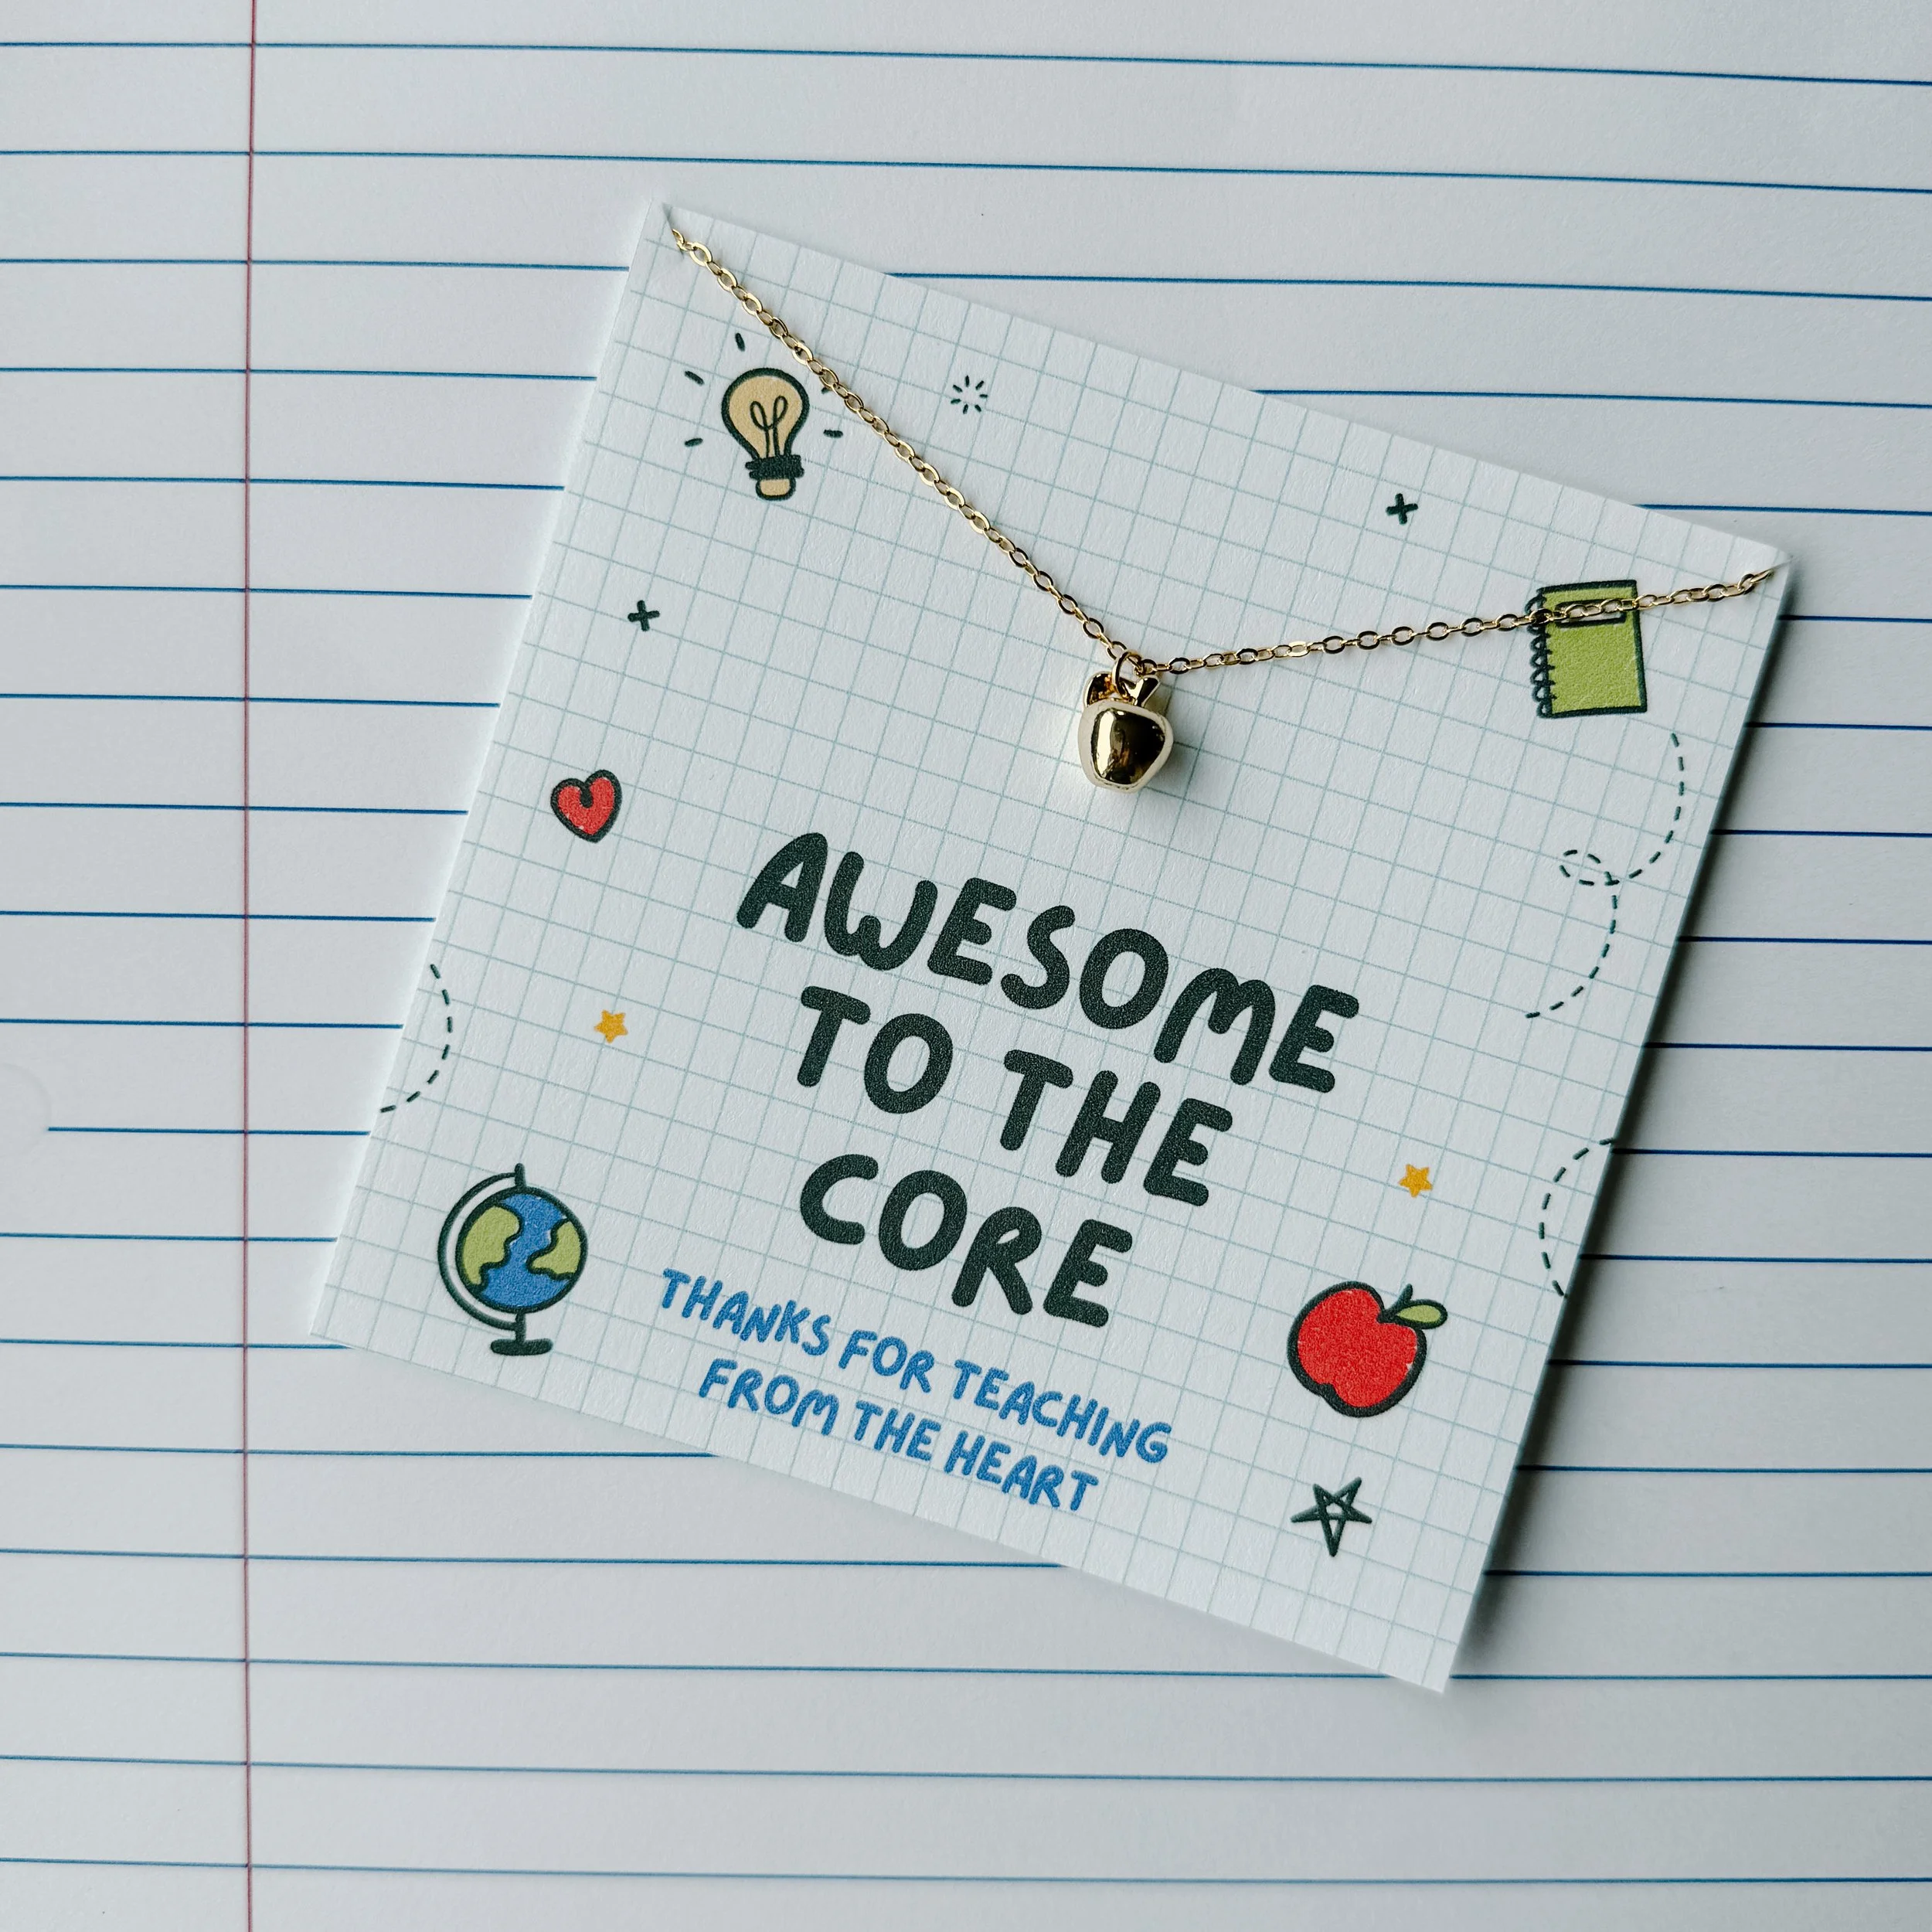 AWESOME
TO THE
CORE
THANKS FOR TEACHING
FROM THE HEART